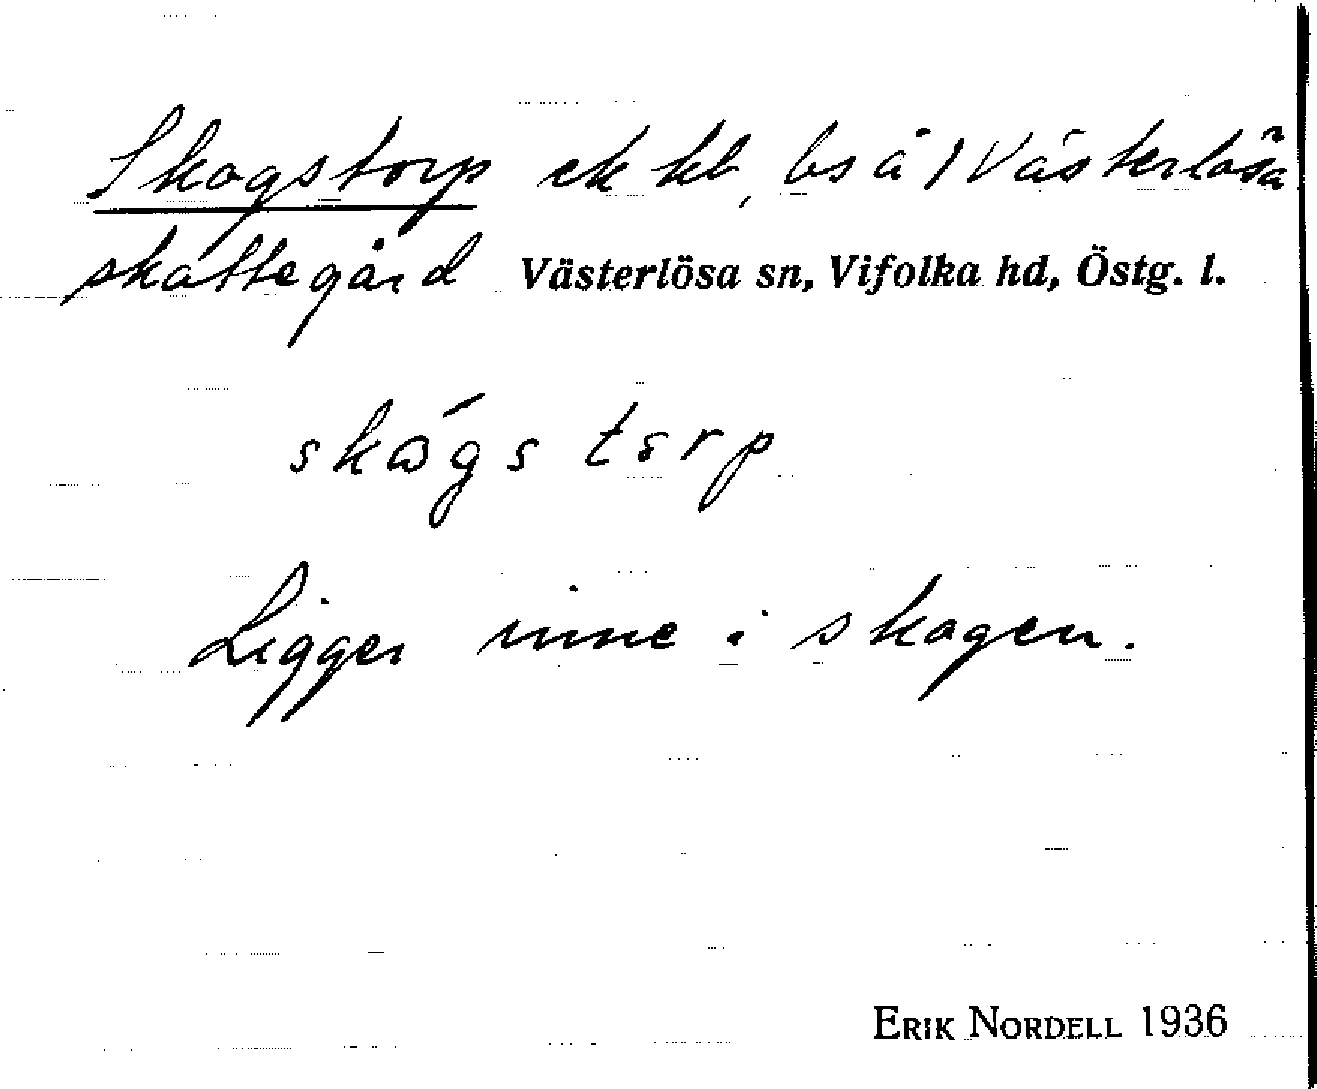 Skogstorp ek kb, bs å 1 Västerlösa
skattegård Västerlösa sn, Vifolka hd, Östg. l.
skógs torp
Ligger inne i skogen.
ERIK NORDELL 1936